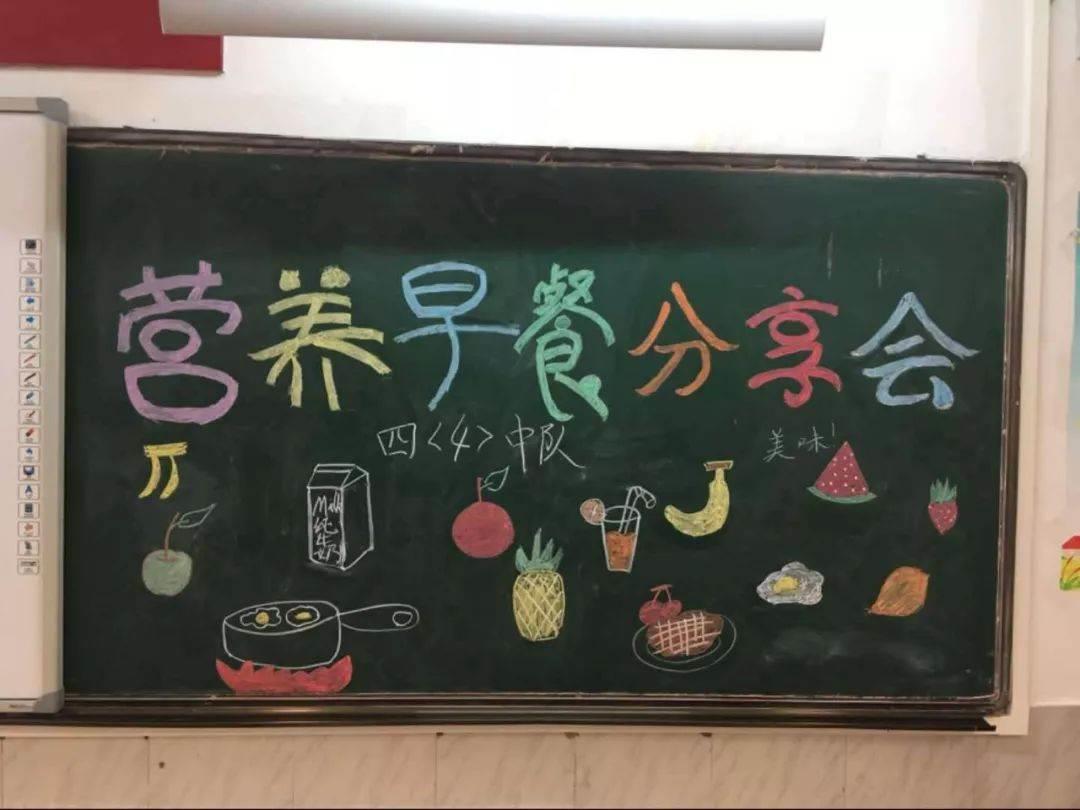 营养早餐分享会
四<4>中队
美味!
Milk
纯
牛
奶